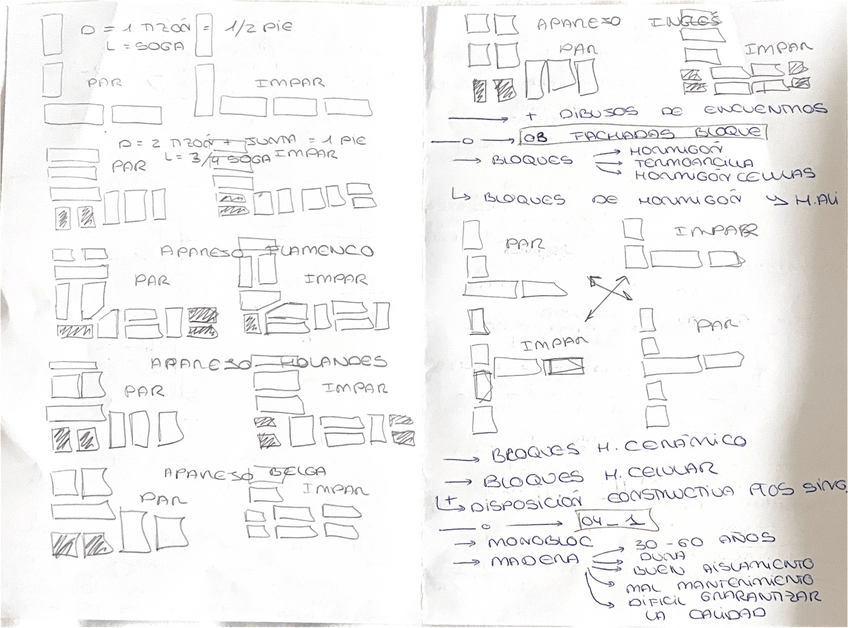 D = 1 TIZÓN = 1/2 PIE
L = SOGA
PAR IMPAR
D = 2 TIZÓN + JUNTA = 1 PIE
L = 3/4 SOGA
PAR IMPAR
APAREJO FLAMENCO
PAR IMPAR
APAREJO HOLANDES
PAR IMPAR
APAREJO BELGA
PAR IMPAR
APAREJO INGLES
PAR IMPAR
→ + DIBUJOS DE ENCUENTROS
—o→ 08 FACHADAS BLOQUE
→ BLOQUES → HORMIGÓN
→ TERMOARCILLA
→ HORMIGÓN CELULAS
↳ BLOQUES DE HORMIGÓN → H. ALI
PAR IMPAR
IMPAR PAR
→ BLOQUES H. CERÁMICO
→ BLOQUES H. CELULAR
↳+ DISPOSICIÓN CONSTRUCTIVA PTOS SING.
—o→ 04_1
→ MONOBLOC
→ MADERA → 30-60 AÑOS
→ DURA
→ BUEN AISLAMIENTO
→ MAL MANTENIMIENTO
→ DIFICIL GNARANTIZAR
LA CALIDAD